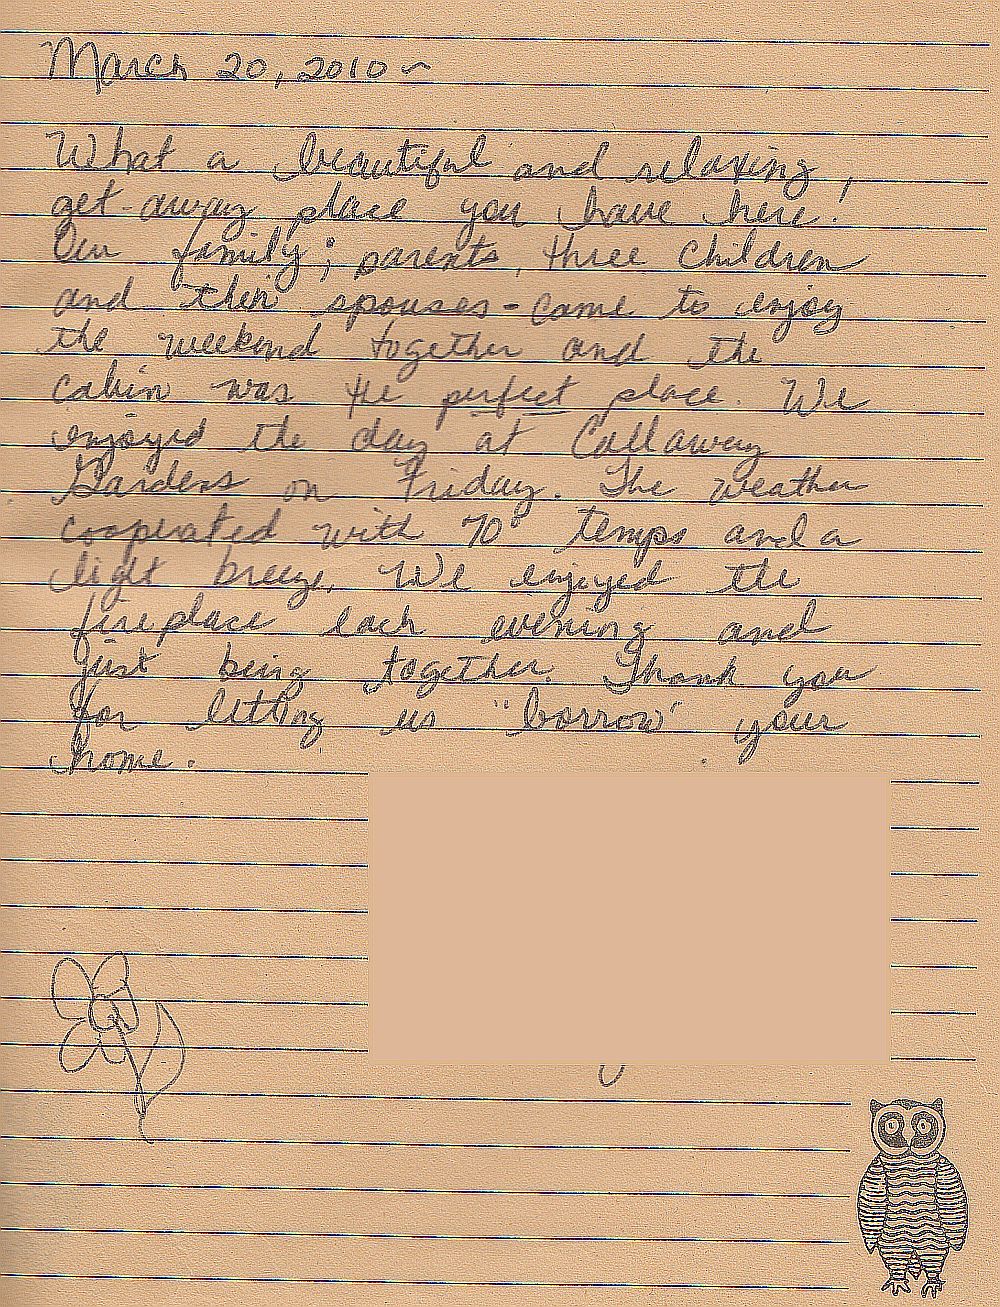 March 20, 2010 ~
What a beautiful and relaxing,
get-away place you have here!
Our family; parents, three children
and their spouses - came to enjoy
the weekend together and the
cabin was the perfect place. We
enjoyed the day at Callaway
Gardens on Friday. The weather
cooperated with 70° temps and a
light breeze. We enjoyed the
fireplace each evening and
just being together. Thank you
for letting us "borrow" your
home.